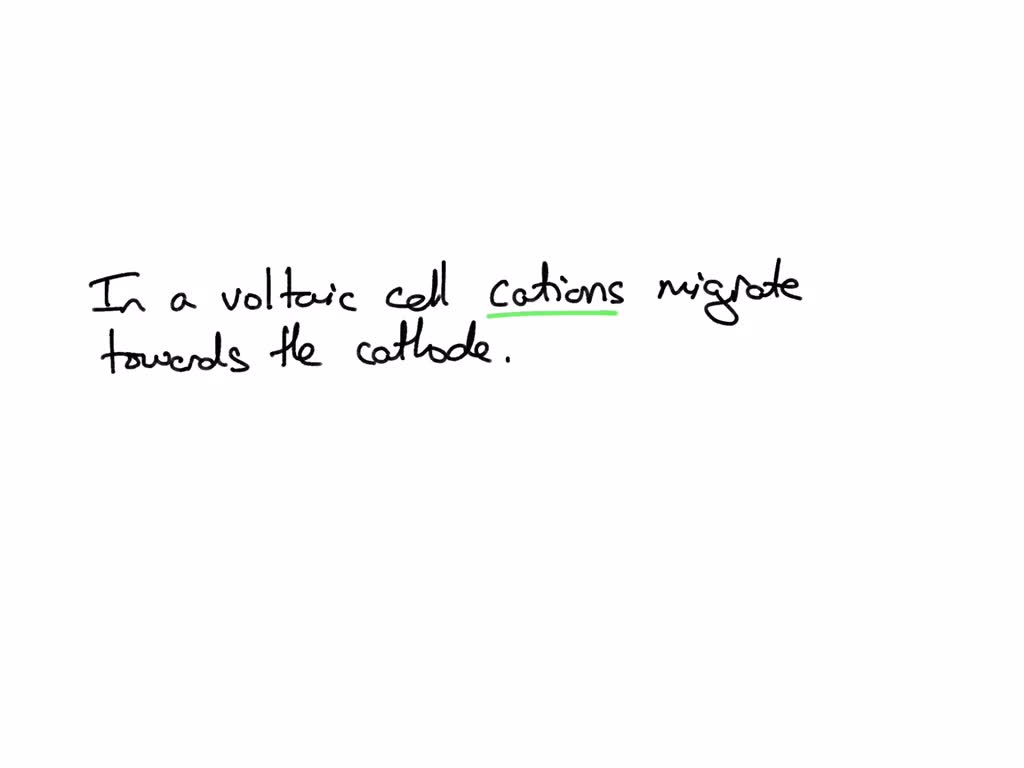 In a voltaic cell cations migrate
towards the cathode.